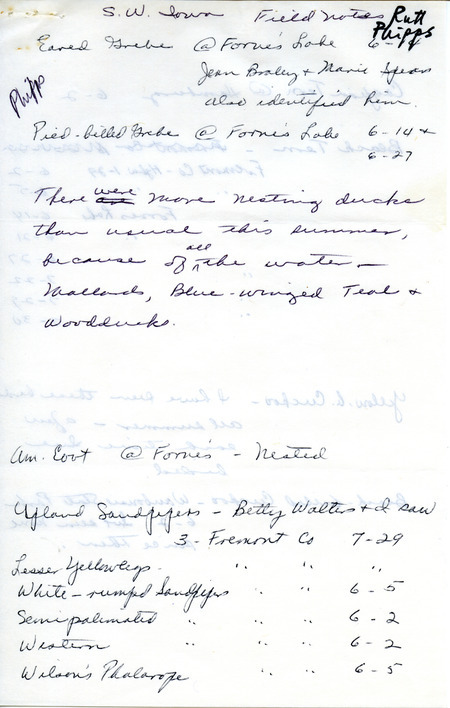 S.W. Iowa Field Notes Ruth Phipps
Eared Grebe @ Fornis Lake 6-
Jean Braley & Marie Spears
also identified him.
Phipps
Pied-billed Grebe @ Fornis Lake 6-14 &
6-27
There were more nesting ducks
than usual this summer,
because of all the water -
Mallards, Blue-winged Teal &
Woodducks.
Am. Coot @ Fornis - Nested
Upland Sandpipers - Betty Walters & I saw
3 - Fremont Co 7-29
Lesser Yellowlegs " " "
White-rumped Sandpipers " " 6-5
Semipalmated " " " 6-2
Western " " 6-2
Wilson's Phalarope " " 6-5